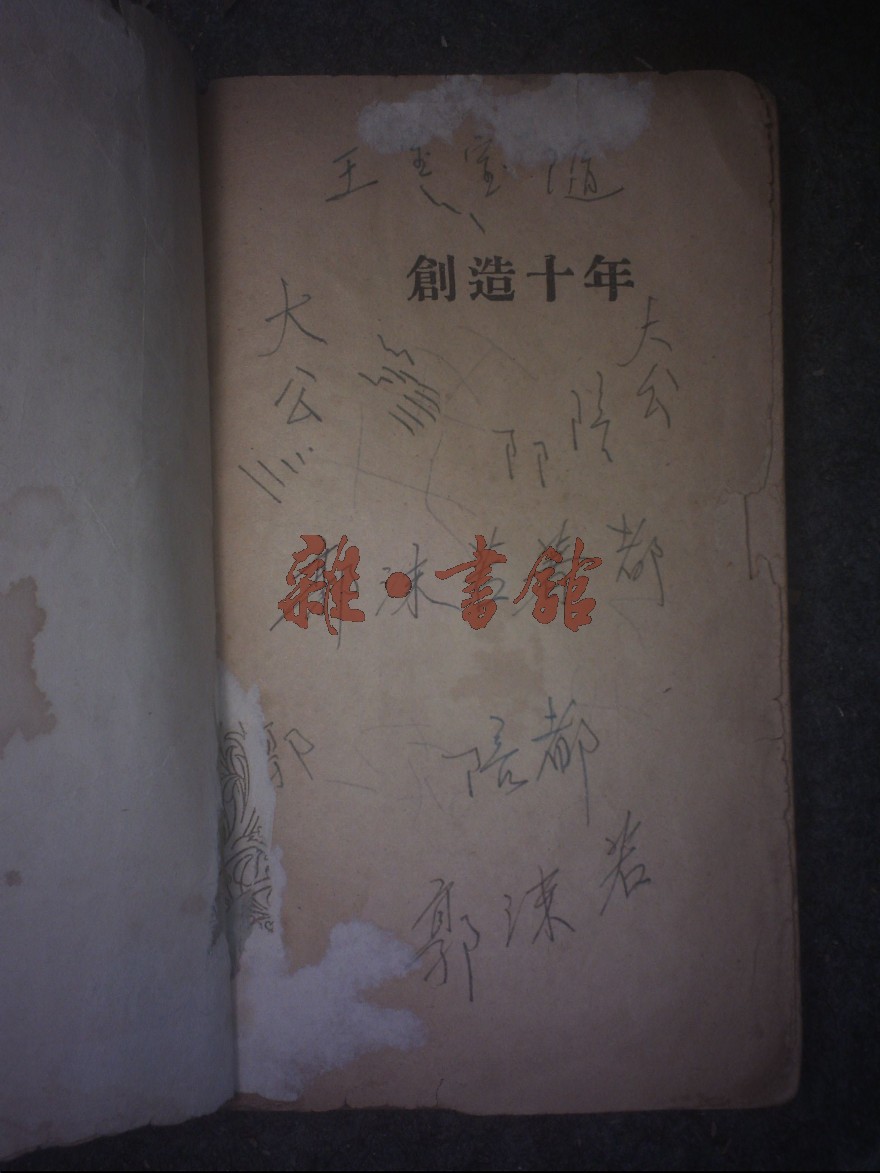 王 隨
創造十年
大公
大公
陪
都
雜·書館
沫
郭
陪都
郭沫若